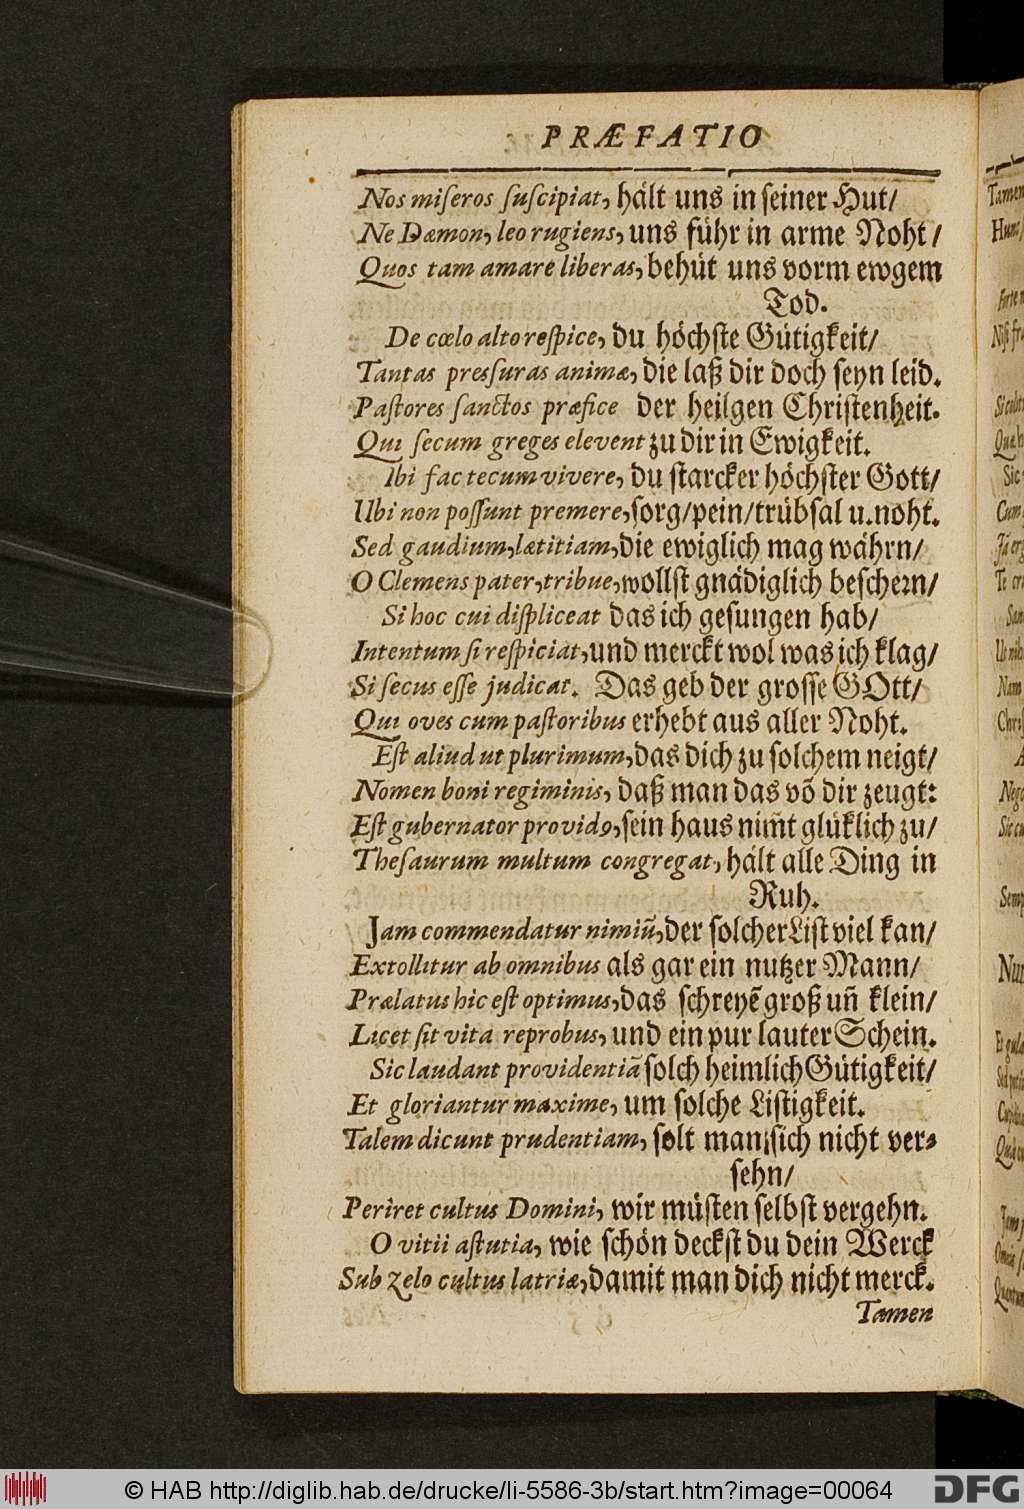 PRÆFATIO
Nos miſeros ſuſcipiat, hält uns in ſeiner Hut/
Ne Dæmon, leo rugiens, uns führ in arme Noht/
Quos tam amare liberas, behüt uns vorm ewgem
Tod.
De cœlo alto reſpice, du höchſte Gütigkeit/
Tantas presſuras animæ, die laß dir doch ſeyn leid.
Paſtores ſanctos præfice der heilgen Chriſtenheit.
Qui ſecum greges elevent zu dir in Ewigkeit.
Ibi fac tecum vivere, du ſtarcker höchſter Gott/
Ubi non poſſunt premere, ſorg/pein/trübſal u.noht.
Sed gaudium, lætitiam, die ewiglich mag währn/
O Clemens pater, tribue, wollſt gnädiglich beſchern/
Si hoc cui diſpliceat das ich geſungen hab/
Intentum ſi reſpiciat, und merckt wol was ich klag/
Si ſecus eſſe judicat. Das geb der groſſe GOtt/
Qui oves cum paſtoribus erhebt aus aller Noht.
Eſt aliud ut plurimum, das dich zu ſolchem neigt/
Nomen boni regiminis, daß man das võ dir zeugt:
Eſt gubernator providꝰ, ſein haus nim̃t glüklich zu/
Theſaurum multum congregat, hält alle Ding in
Ruh.
Jam commendatur nimiũ, der ſolcher Liſt viel kan/
Extollitur ab omnibus als gar ein nutzer Mann/
Prælatus hic eſt optimus, das ſchreyẽ groß uñ klein/
Licet ſit vita reprobus, und ein pur lauter Schein.
Sic laudant providentiã ſolch heimlich Gütigkeit/
Et gloriantur maxime, um ſolche Liſtigkeit.
Talem dicunt prudentiam, ſolt man ſich nicht ver⸗
ſehn/
Periret cultus Domini, wir müſten ſelbſt vergehn.
O vitii aſtutia, wie ſchön deckſt du dein Werck
Sub zelo cultus latriæ, damit man dich nicht merck.
Tamen
© HAB http://diglib.hab.de/drucke/li-5586-3b/start.htm?image=00064
DFG